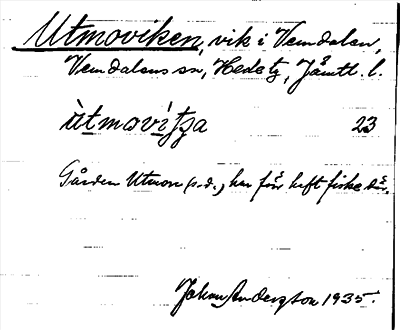 Utmoviken, vik i Vemdalen,
Vemdalens sn, Hede tg, Jämtl. l.
ùtmovìtja 23
Gården Utmon (s.d.) har förr haft fiske där.
Johan Anderzson 1935.